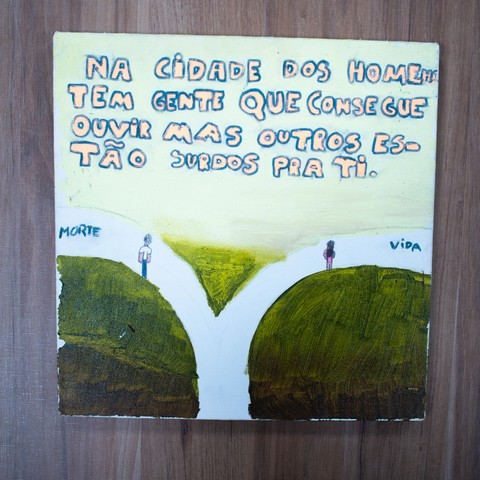 NA CIDADE DOS HOMENS
TEM GENTE QUE CONSEGUE
OUVIR MAS OUTROS ES-
TÃO SURDOS PRA TI.
MORTE
VIDA